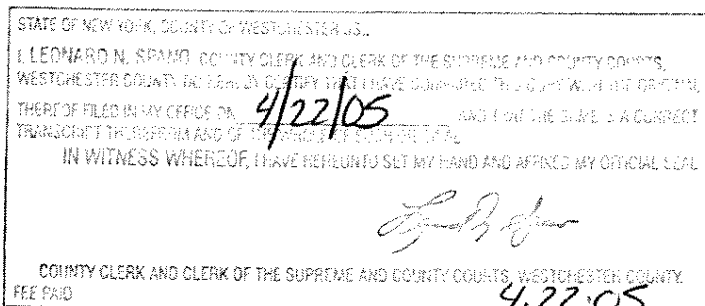 STATE OF NEW YORK, COUNTY OF WESTCHESTER SS.:
I, LEONARD N. SPANO, COUNTY CLERK AND CLERK OF THE SUPREME AND COUNTY COURTS,
WESTCHESTER COUNTY, DO HEREBY CERTIFY THAT I HAVE COMPARED THIS COPY WITH THE ORIGINAL
THEREOF FILED IN MY OFFICE ON 4/22/05 AND THAT THE SAME IS A CORRECT
TRANSCRIPT THEREFROM AND OF THE WHOLE OF SUCH ORIGINAL
IN WITNESS WHEREOF, I HAVE HEREUNTO SET MY HAND AND AFFIXED MY OFFICIAL SEAL
COUNTY CLERK AND CLERK OF THE SUPREME AND COUNTY COURTS, WESTCHESTER COUNTY.
FEE PAID 4.22.05